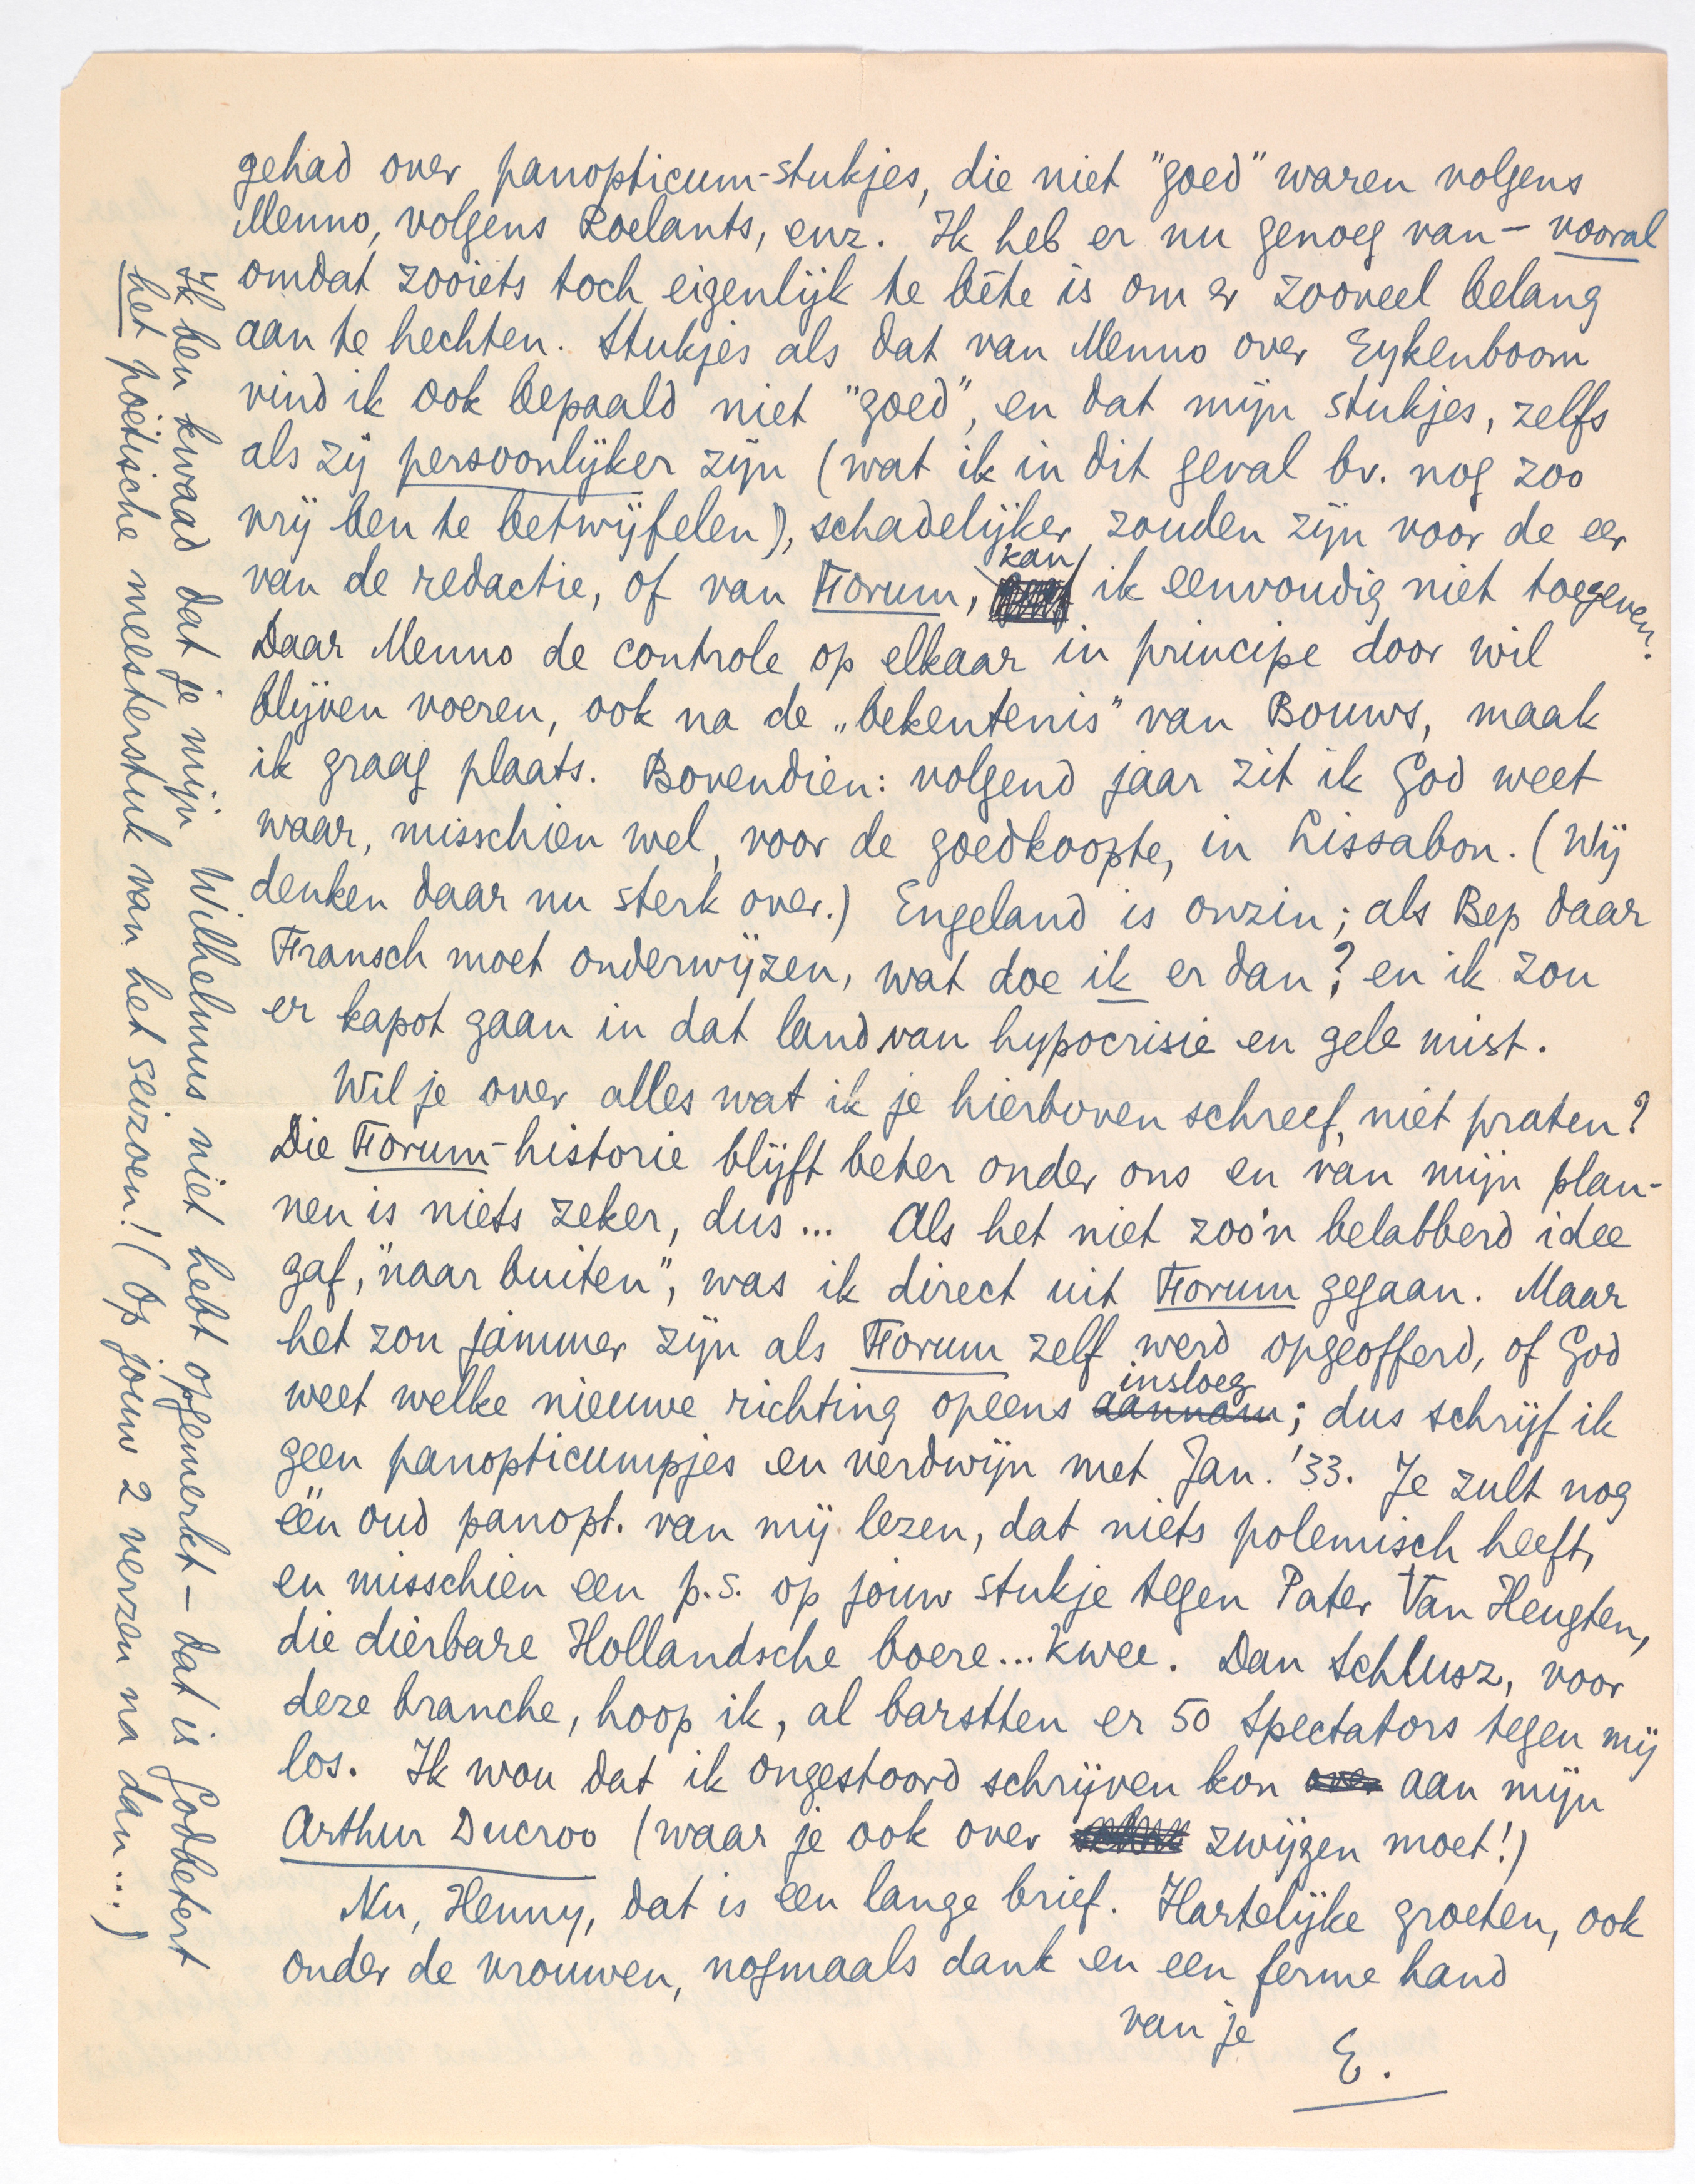 gehad over panopticum-stukjes, die niet "goed" waren volgens
Menno, volgens Roelants, enz. Ik heb er nu genoeg van - vooral
omdat zooiets toch eigenlijk te bête is om er zooveel belang
aan te hechten. Stukjes als dat van Menno over Eykenboom
vind ik ook bepaald niet "goed", en dat mijn stukjes, zelfs
als zij persoonlijker zijn (wat ik in dit geval bv. nog zoo
vrij ben te betwijfelen), schadelijker zouden zijn voor de eer
van de redactie, of van Forum, kan ik eenvoudig niet toegeven.
Daar Menno de controle op elkaar in principe door wil
blijven voeren, ook na de „bekentenis" van Bouws, maak
ik graag plaats. Bovendien: volgend jaar zit ik God weet
waar, misschien wel, voor de goedkoopte, in Lissabon. (Wij
denken daar nu sterk over.) Engeland is onzin; als Bep daar
Fransch moet onderwijzen, wat doe ik er dan? en ik zou
er kapot gaan in dat land van hypocrisie en gele mist.
Wil je over alles wat ik je hierboven schreef, niet praten?
Die Forum-historie blijft beter onder ons en van mijn plan-
nen is niets zeker, dus... Als het niet zoo'n belabberd idee
gaf, "naar buiten", was ik direct uit Forum gegaan. Maar
het zou jammer zijn als Forum zelf werd opgeofferd, of God
weet welke nieuwe richting opeens aannam insloeg; dus schrijf ik
geen panopticumpjes en verdwijn met Jan. '33. Je zult nog
één oud panopt. van mij lezen, dat niets polemisch heeft,
en misschien een p.s. op jouw stukje tegen Pater Van Heugten,
die dierbare Hollandsche boere...kwee. Dan Schlusz, voor
deze branche, hoop ik, al barstten er 50 Spectators tegen mij
los. Ik wou dat ik ongestoord schrijven kon over aan mijn
Arthur Ducroo (waar je ook over zwijgen moet!)
Nu, Henny, dat is een lange brief. Hartelijke groeten, ook
onder de vrouwen, nogmaals dank en een ferme hand
van je
E.
Ik ben kwaad dat je mijn Wilhelmus niet hebt opgemerkt - dat is Godbetert
het poëtische meesterstuk van het seizoen! (Op jouw 2 verzen na dan....)